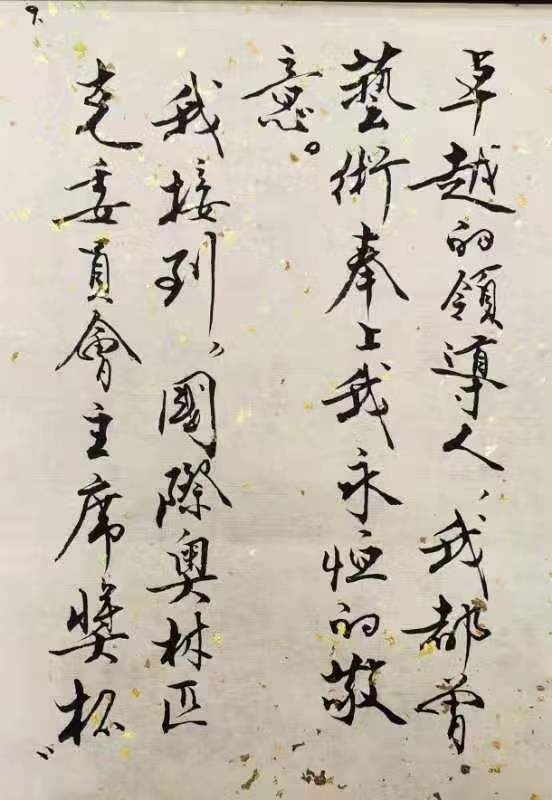 卓越的領導人、我都曾
藝術奉上我永恒的敬
意。
我接到，國際奧林匹
克委員會主席獎杯"
9.